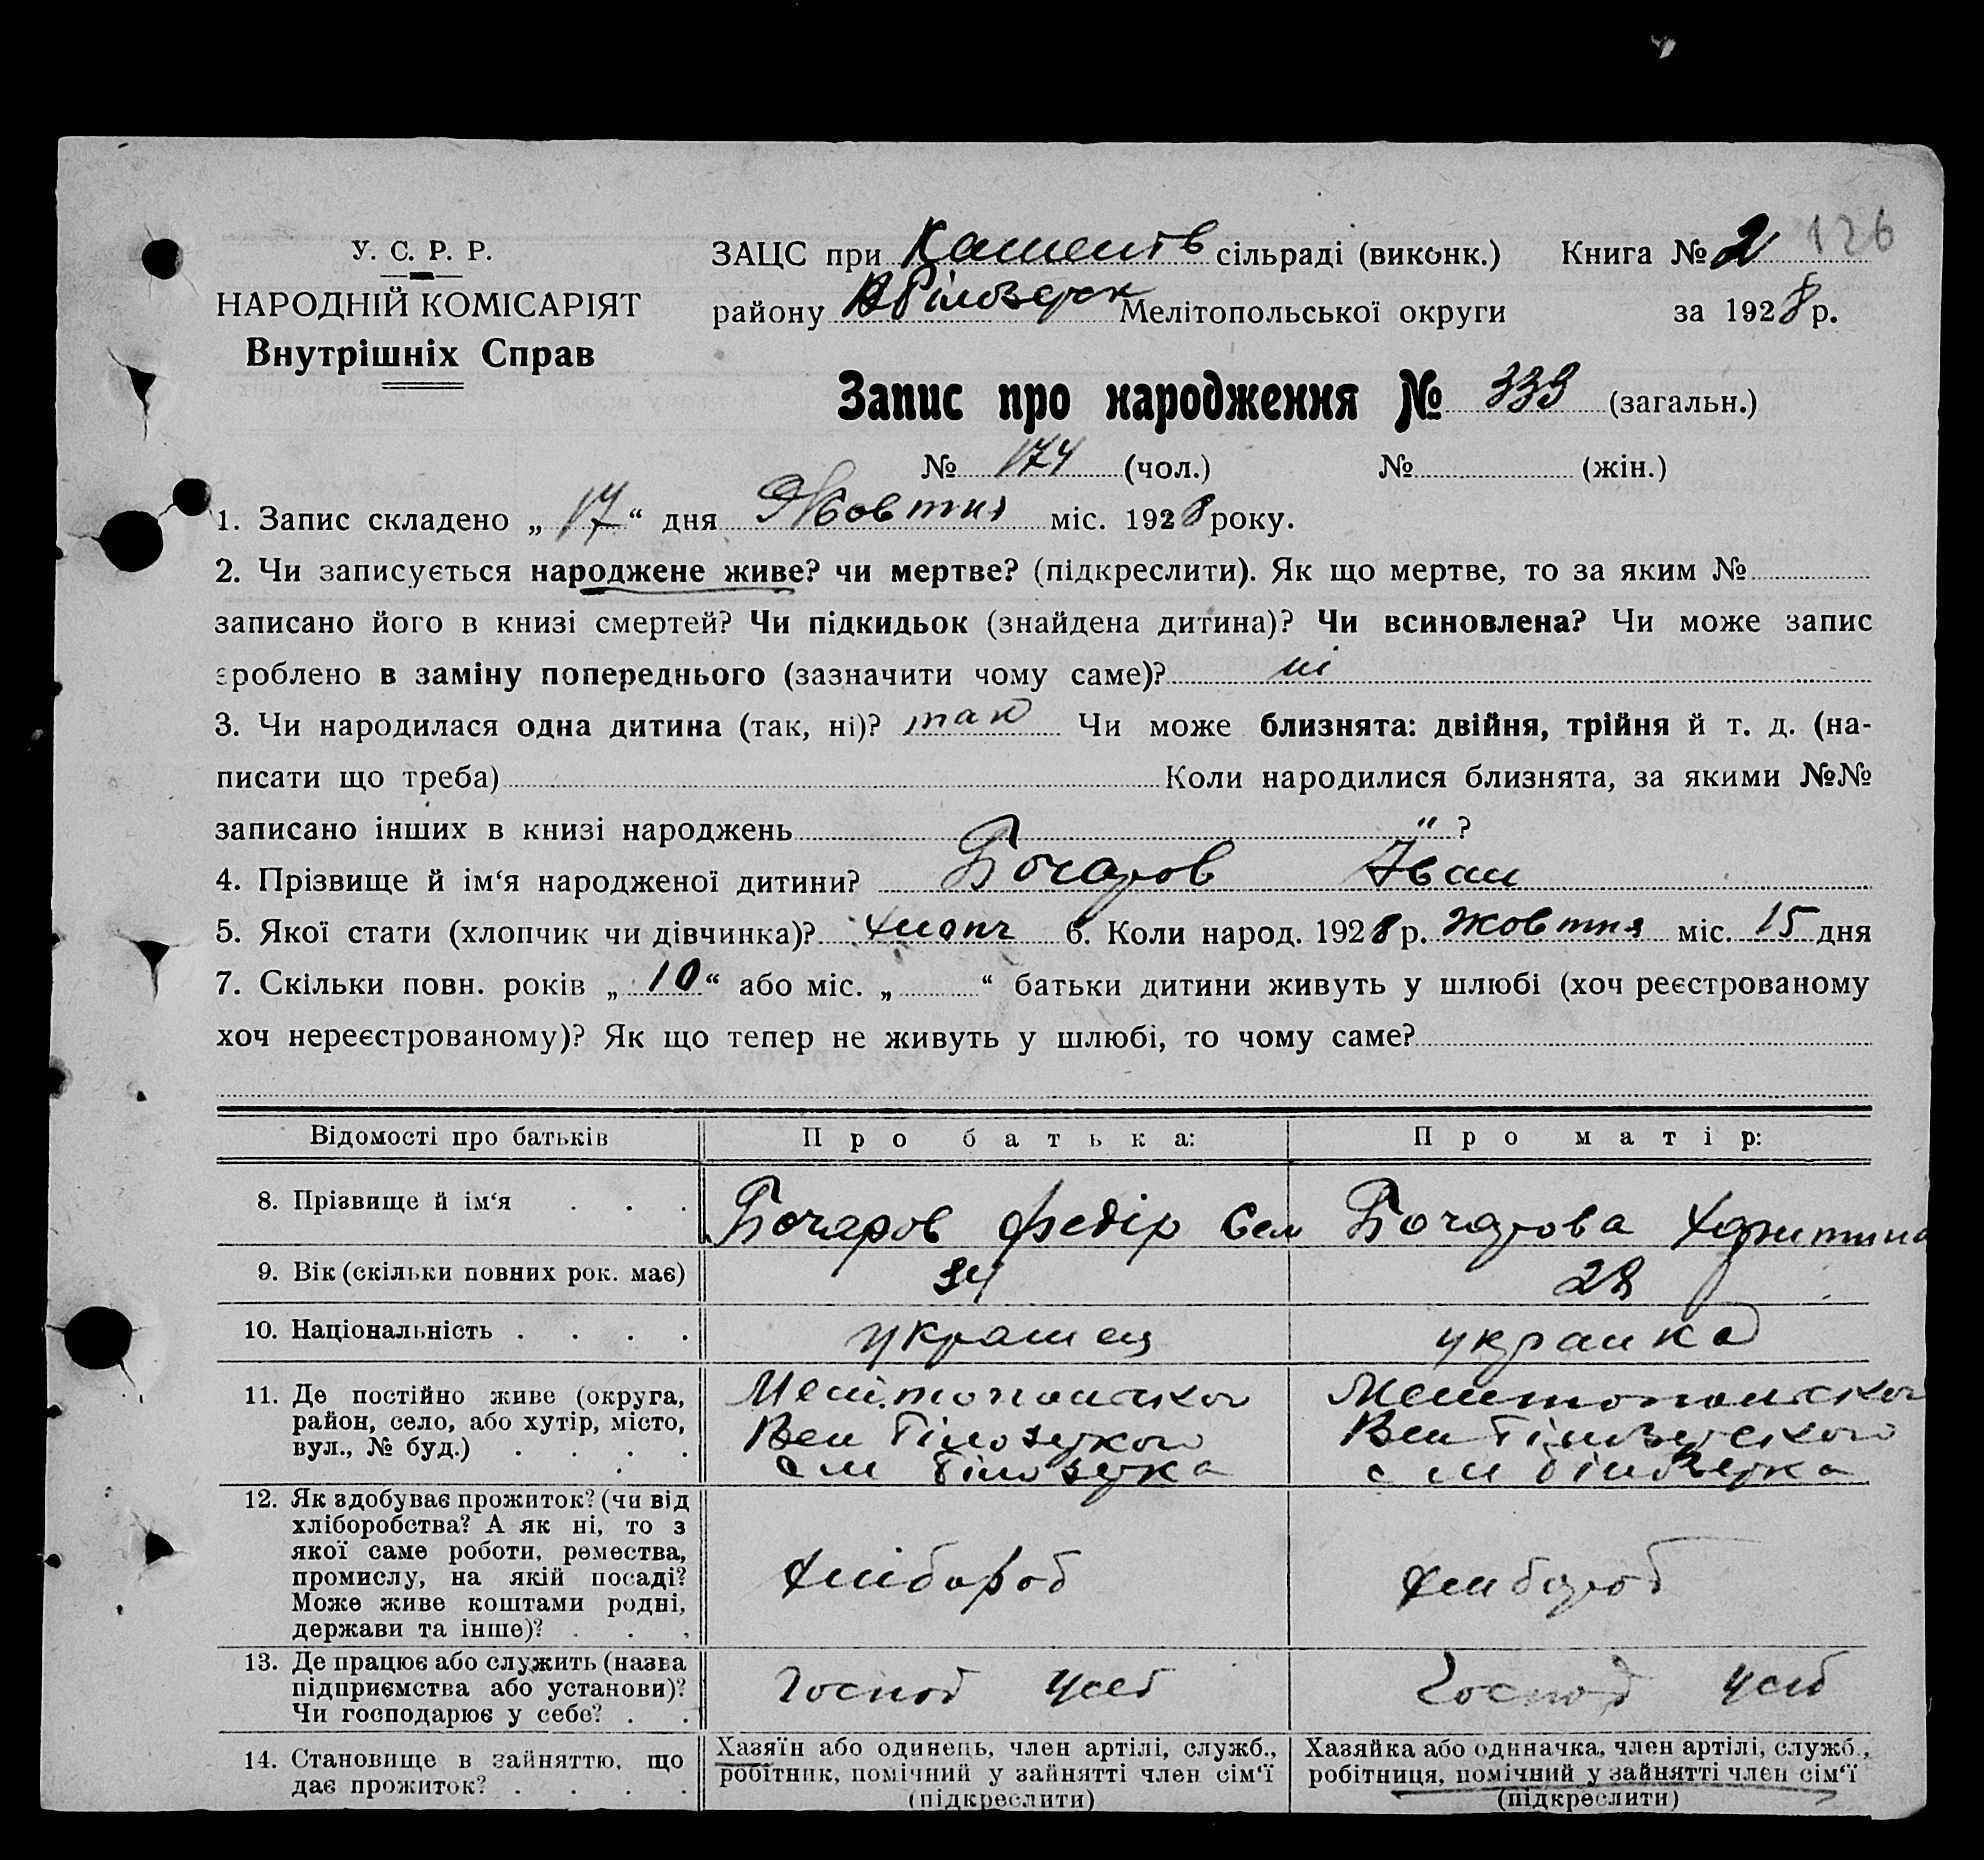 У. С. Р. Р.
НАРОДНІЙ КОМІСАРІЯТ
Внутрішніх Справ
126
ЗАЦС при сільраді (виконк.) Книга № 2
району Мелітопольської округи за 1928 р.
Запис про народження № 339 (загальн.)
№ 174 (чол.) № (жін.)
1. Запис складено „ 17 “ дня Жовтня міс. 1928 року.
2. Чи записується народжене живе? чи мертве? (підкреслити). Як що мертве, то за яким №
записано його в книзі смертей? Чи підкидьок (знайдена дитина)? Чи всиновлена? Чи може запис
зроблено в заміну попереднього (зазначити чому саме)? ні
3. Чи народилася одна дитина (так, ні)? так Чи може близнята: двійня, трійня й т. д. (на-
писати що треба) Коли народилися близнята, за якими №№
записано інших в книзі народжень " ?
4. Прізвище й ім‘я народженої дитини? Бочаров Іван
5. Якої стати (хлопчик чи дівчинка)? хлопч 6. Коли народ. 1928 р. жовтня міс. 15 дня
7. Скільки повн. років „ 10 “ або міс. „ “ батьки дитини живуть у шлюбі (хоч реєстрованому
хоч нереєстрованому)? Як що тепер не живуть у шлюбі, то чому саме?
Відомості про батьків Про батька: Про матір:
8. Прізвище й ім‘я Бочаров Федір Сем Бочарова Харитина
9. Вік (скільки повних рок. має) 34 28
10. Національність украінец украинка
11. Де постійно живе (округа,
район, село, або хутір, місто,
вул., № буд.)
Мелітопольскої
Вел Білозурского
Мелитопольскої
12. Як здобуває прожиток? (чи від
хліборобства? А як ні, то з
якої саме роботи, ремества,
промислу, на якій посаді?
Може живе коштами родні,
держави та інше)?
хлібороб хлибороб
13. Де працює або служить (назва
підприємства або установи)?
Чи господарює у себе?
Господ усеб Господ усеб
14. Становище в зайняттю, що
дає прожиток?
Хазяїн або одинець, член артілі, служб.,
робітник, помічний у зайнятті член сім‘ї
(підкреслити)
Хазяйка або одиначка, член артілі, служб.,
робітниця, помічний у зайнятті член сім‘ї
(підкреслити)